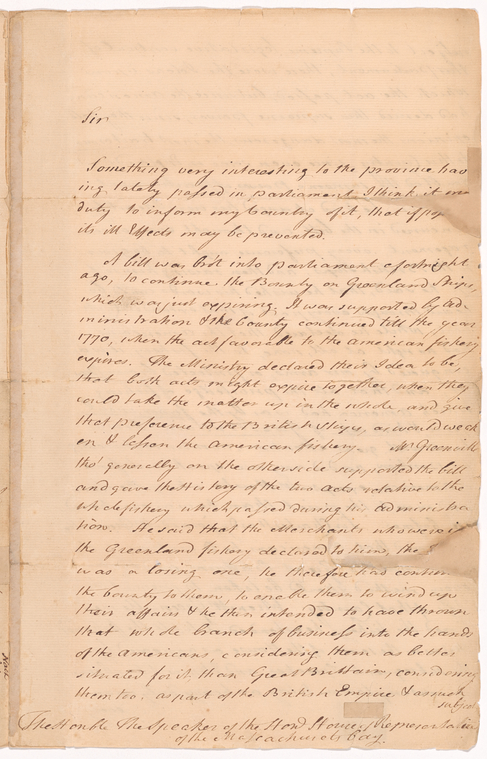 Sir
Something very interesting to the province hav
ing lately passed in parliament I think it
duty to inform my Country of it, that if
its ill Effects may be prevented.
A bill was bro't into parliament a fortnight
ago, to continue the Bounty on Greenland Ships,
which was just expiring, It was supported by Ad-
ministration & the Bounty continued till the year
1770, when the act favorable to the American fishery
expires. The Ministry declared their Idea to be,
that both acts might expire together, when they
could take the matter up in the whole, and give
that preference to the British Ships, as would weak
en & lessen the American fishery.
tho' generally on the other side supported the bill
and gave the History of the two acts relative to the
whale fishery which passed during his administra
tion. He said that the Merchants who were in
the Greenland fishery declared to him, the
was a losing one, he therefore had
the bounty to them, to enable them to wind up
their affairs & he then intended to have thrown
that whole branch of business into the hands
of the Americans, considering them as better
situated for it than Great Brittain, considering
them too, as part of the British Empire, & as such
subject
The Honble The Speaker of the Hond House of Representatives
of the Massachusets Bay